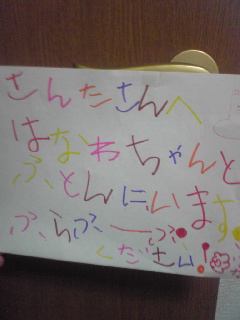 さんたさんへ
はなわちゃんと
ふとんにいます。
ぷらぷーぷ
ください!